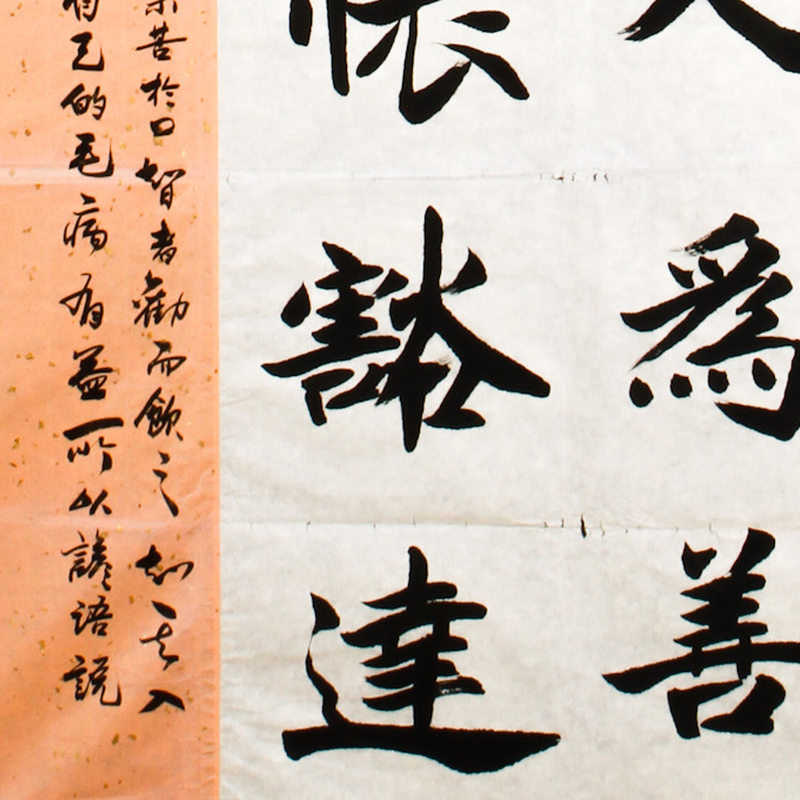 為善
懷豁達
苦於口智者勸而飲之知其入
己的毛病有益所以諺語說